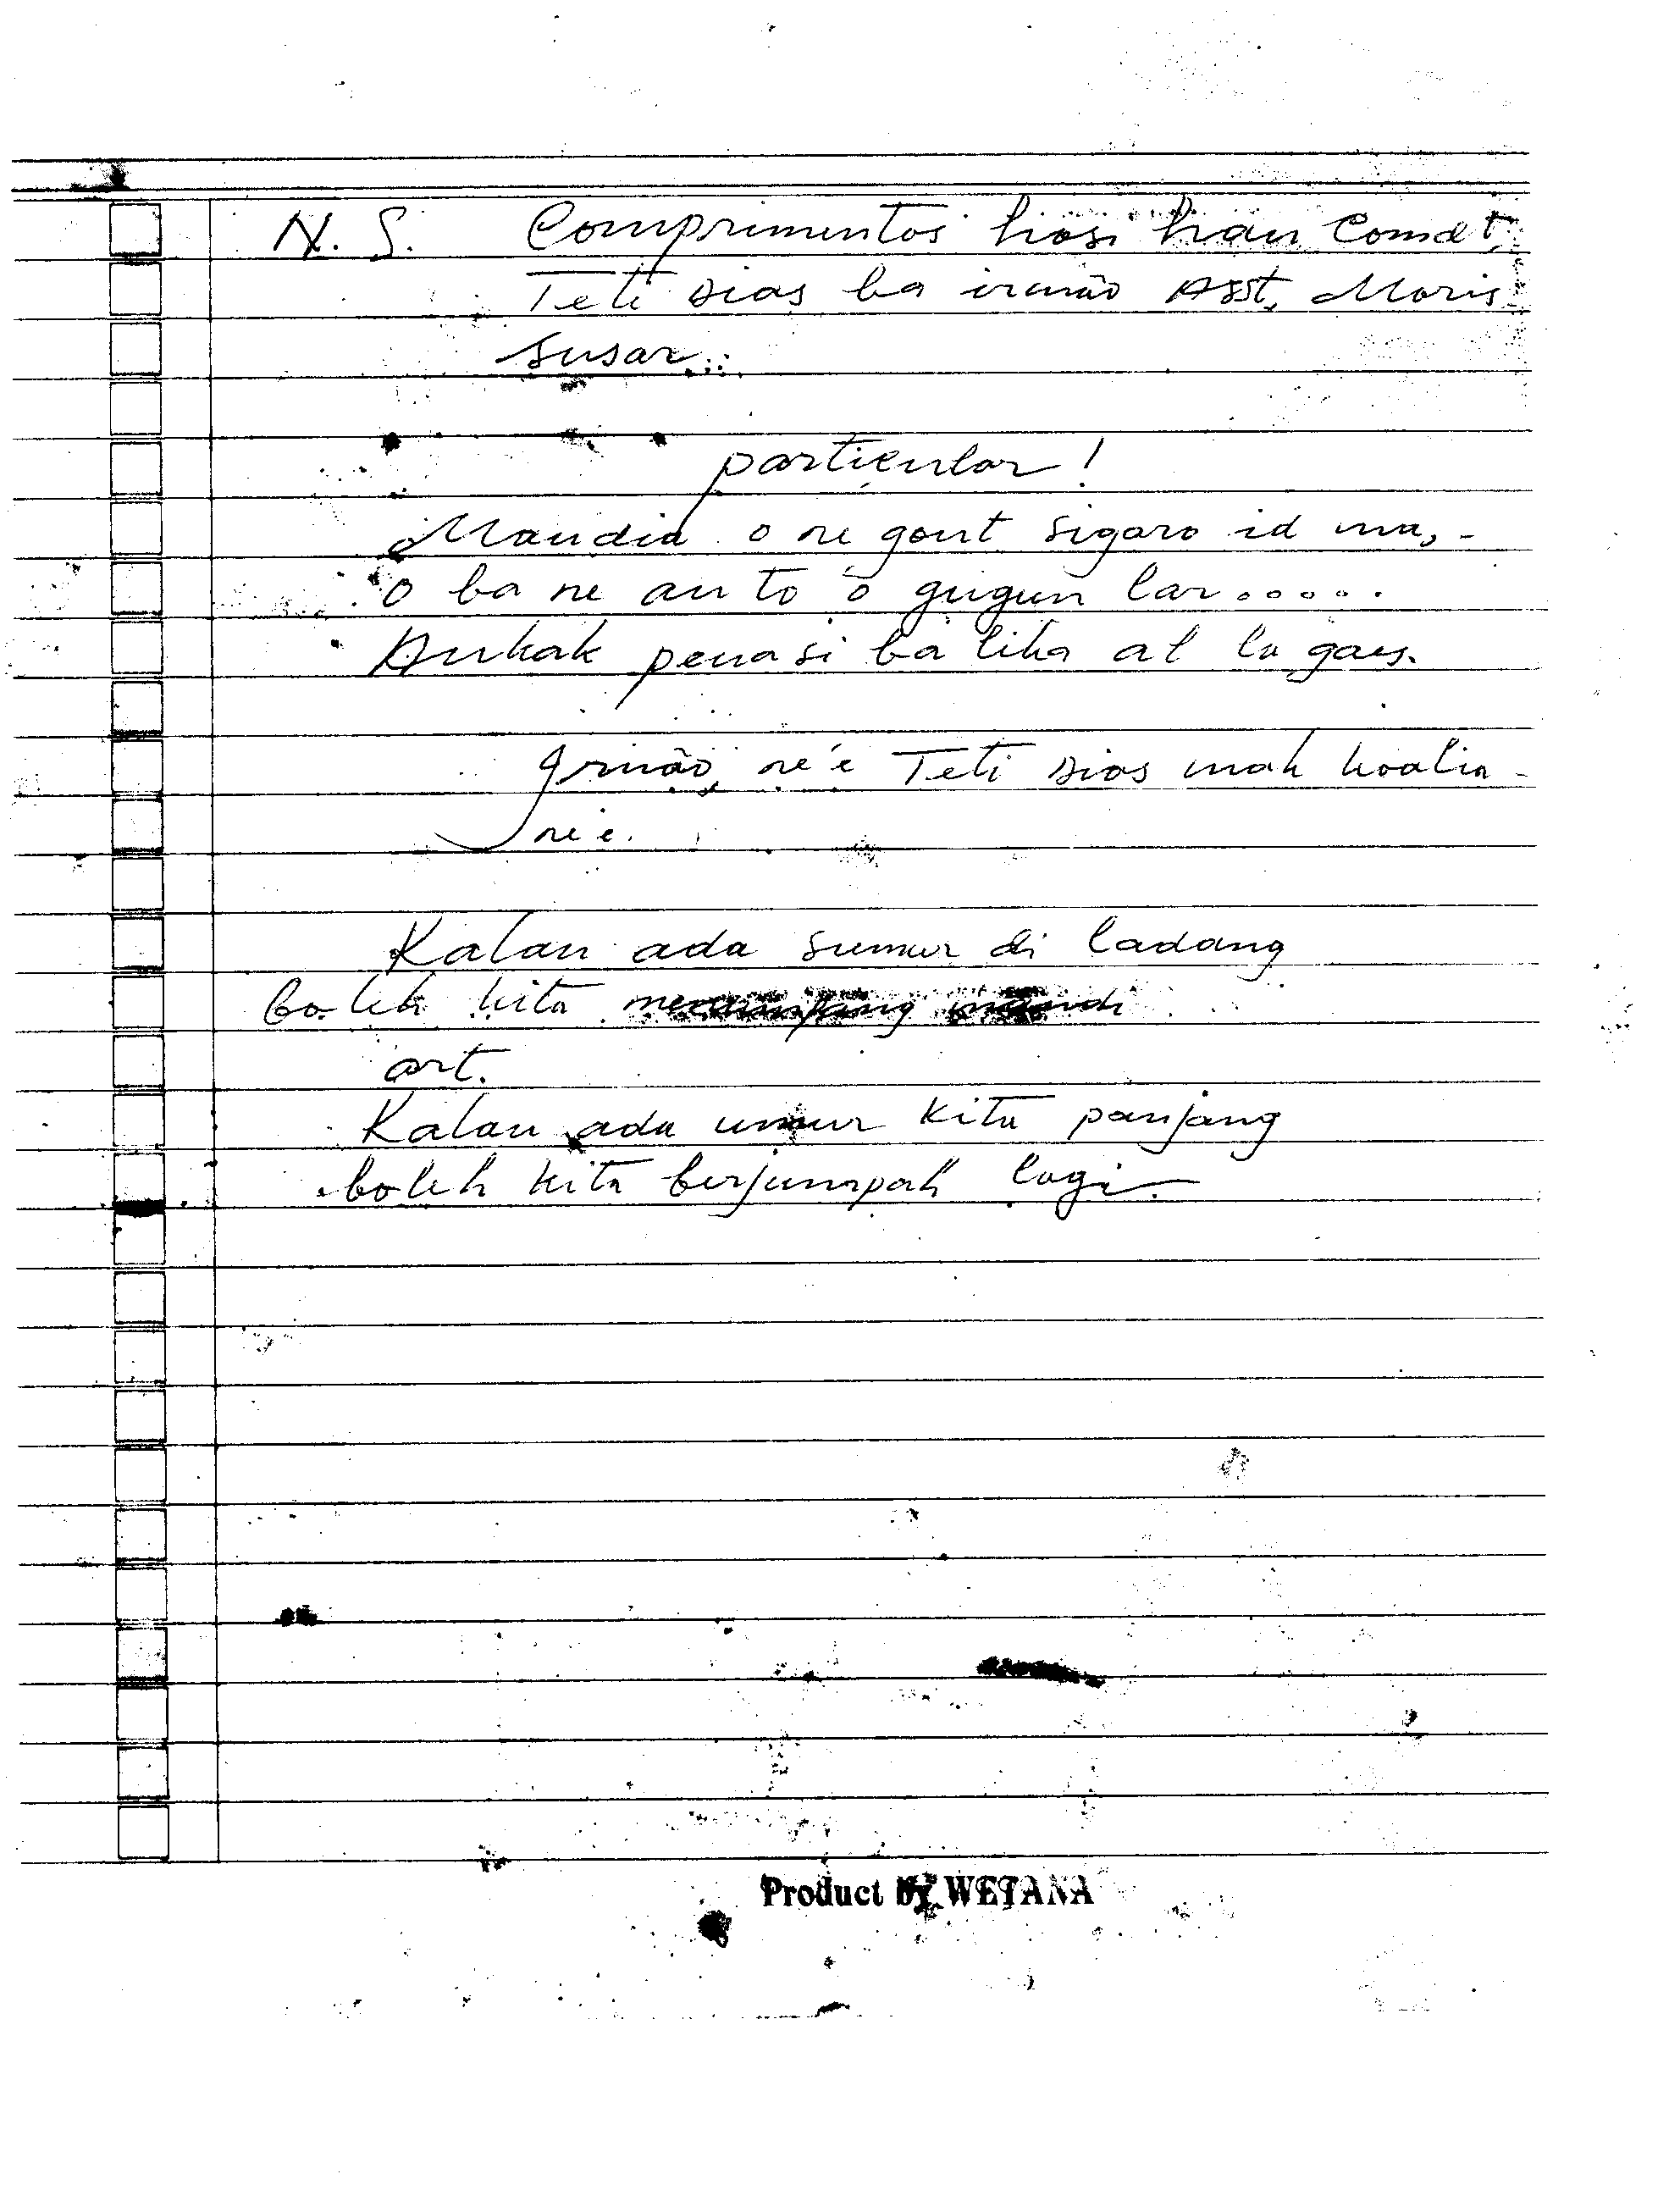 N. S. Comprimentos hosi hau Comdt.
Teti Dias ba irmão Asst. Moris
susar...
particular!
Maudia o ne gout sigaro id ma, -
o ba ne au to o gugun lar.....
Aukak penasi ba lika at la gaes.
Irmão, ne'e Teti Dias mak koalia -
ne'e.
Kalau ada sumur di ladang
boleh kita menumpang mandi
art.
Kalau ada umur kita panjang
boleh kita berjumpah lagi.
Product by WETANA